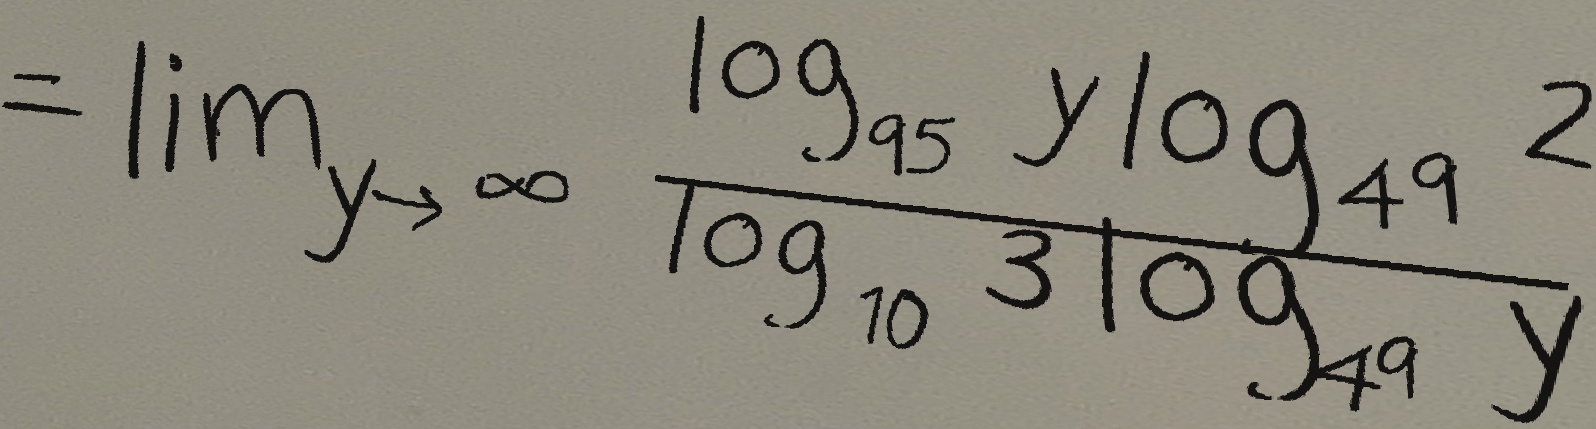 = lim_{y→∞} \frac{log_{95} y log_{49} 2}{log_{10} 3 log_{49} y}